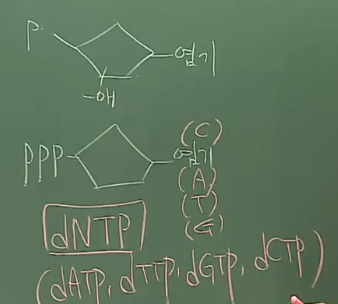 P
염기
-OH
PPP 염기
(C)
(A)
(T)
(G)
dNTP
(dATP, dTTP, dGTP, dCTP)